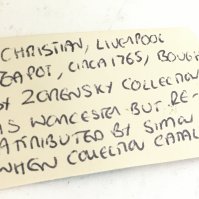 CHRISTIAN, LIVERPOOL
EAPOT, CIRCA 1765, BOUGH
BY ZORENSKY COLLECTION
AS WORCESTER BUT RE-
ATTRIBUTED BY SIMON
WHEN COLLECTION CATAL